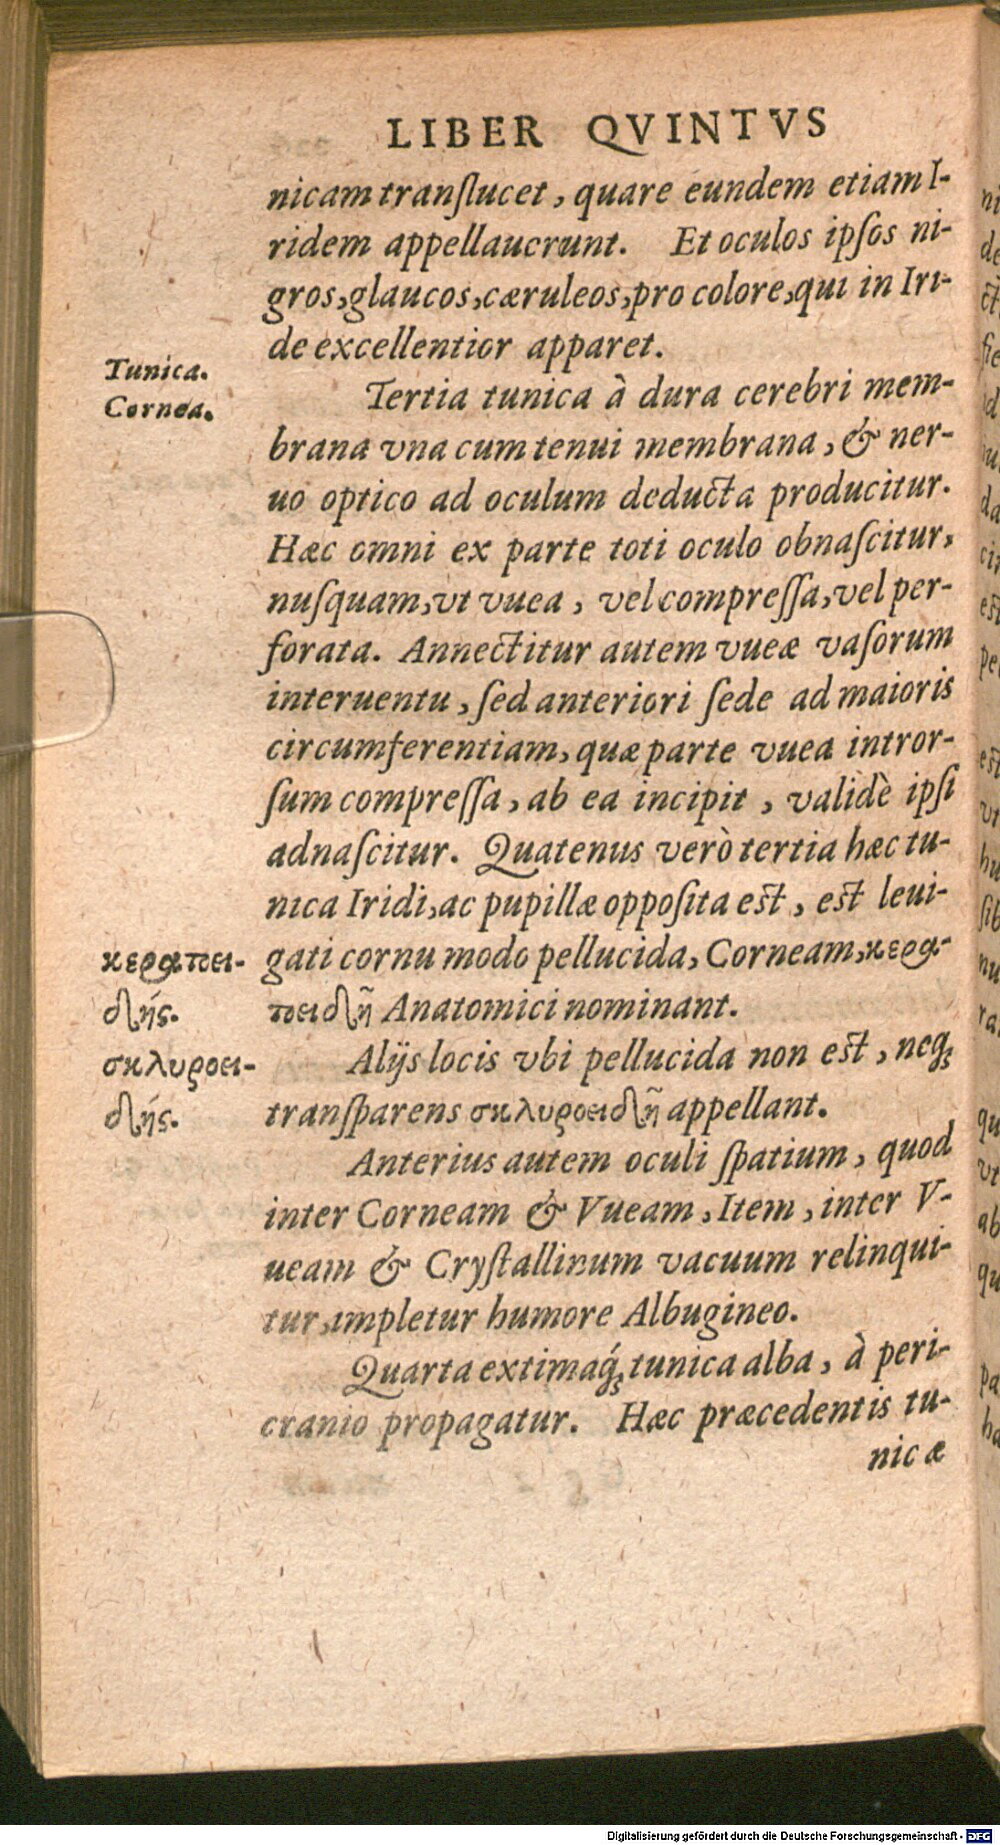 LIBER QVINTVS
nicam tranſlucet, quare eundem etiam I-
ridem appellauerunt. Et oculos ipſos ni-
gros, glaucos, cæruleos, pro colore, qui in Iri-
de excellentior apparet.
Tunica.
Cornea.
Tertia tunica à dura cerebri mem-
brana vna cum tenui membrana, & ner-
uo optico ad oculum deducta producitur.
Hæc omni ex parte toti oculo obnaſcitur,
nuſquam, vt vuea, vel compreſſa, vel per-
forata. Annectitur autem vueæ vaſorum
interuentu, ſed anteriori ſede ad maioris
circumferentiam, quæ parte vuea intror-
ſum compreſſa, ab ea incipit, validè ipſi
adnaſcitur. Quatenus verò tertia hæc tu-
nica Iridi, ac pupillæ oppoſita eſt, eſt leui-
gati cornu modo pellucida, Corneam, κερα-
τοειδῆ Anatomici nominant.
κερατοει-
δής.
Alijs locis vbi pellucida non eſt, neq;
tranſparens σκλυροειδῆ appellant.
σκλυροει-
δής.
Anterius autem oculi ſpatium, quod
inter Corneam & Vueam, Item, inter V-
ueam & Cryſtallinum vacuum relinqui-
tur, impletur humore Albugineo.
Quarta extimaq́; tunica alba, à peri-
cranio propagatur. Hæc præcedentis tu-
nicæ
Digitalisierung gefördert durch die Deutsche Forschungsgemeinschaft - DFG